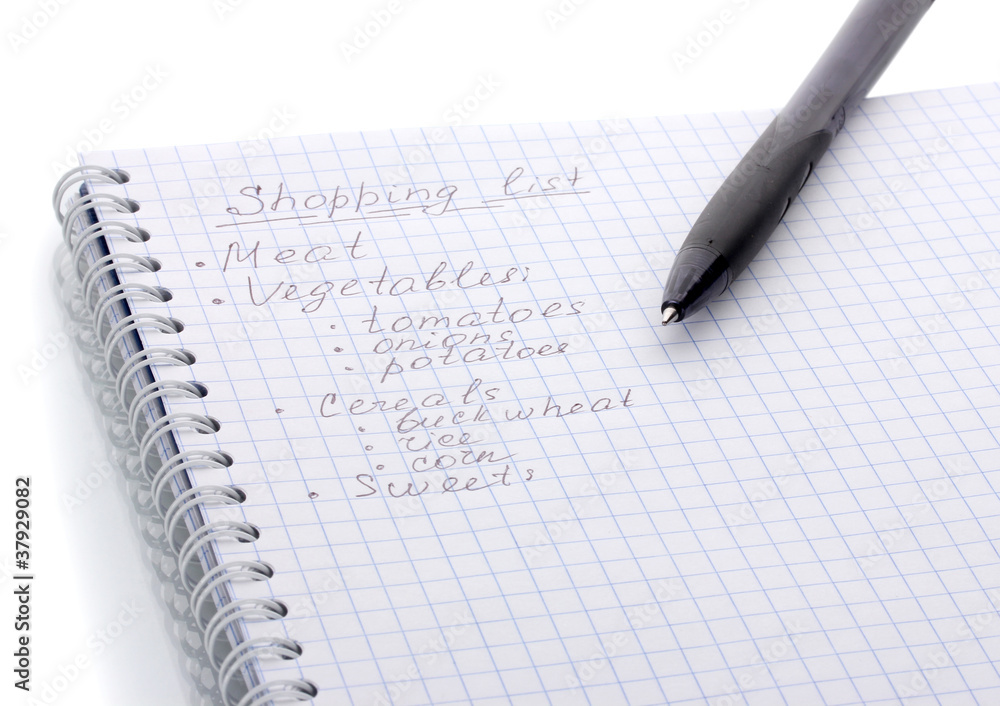 Shopping list
• Meat
• Vegetables:
• tomatoes
• onions
• potatoes
• Cereals
• buckwheat
• rice
• corn
• Sweets
Adobe Stock | #37929082